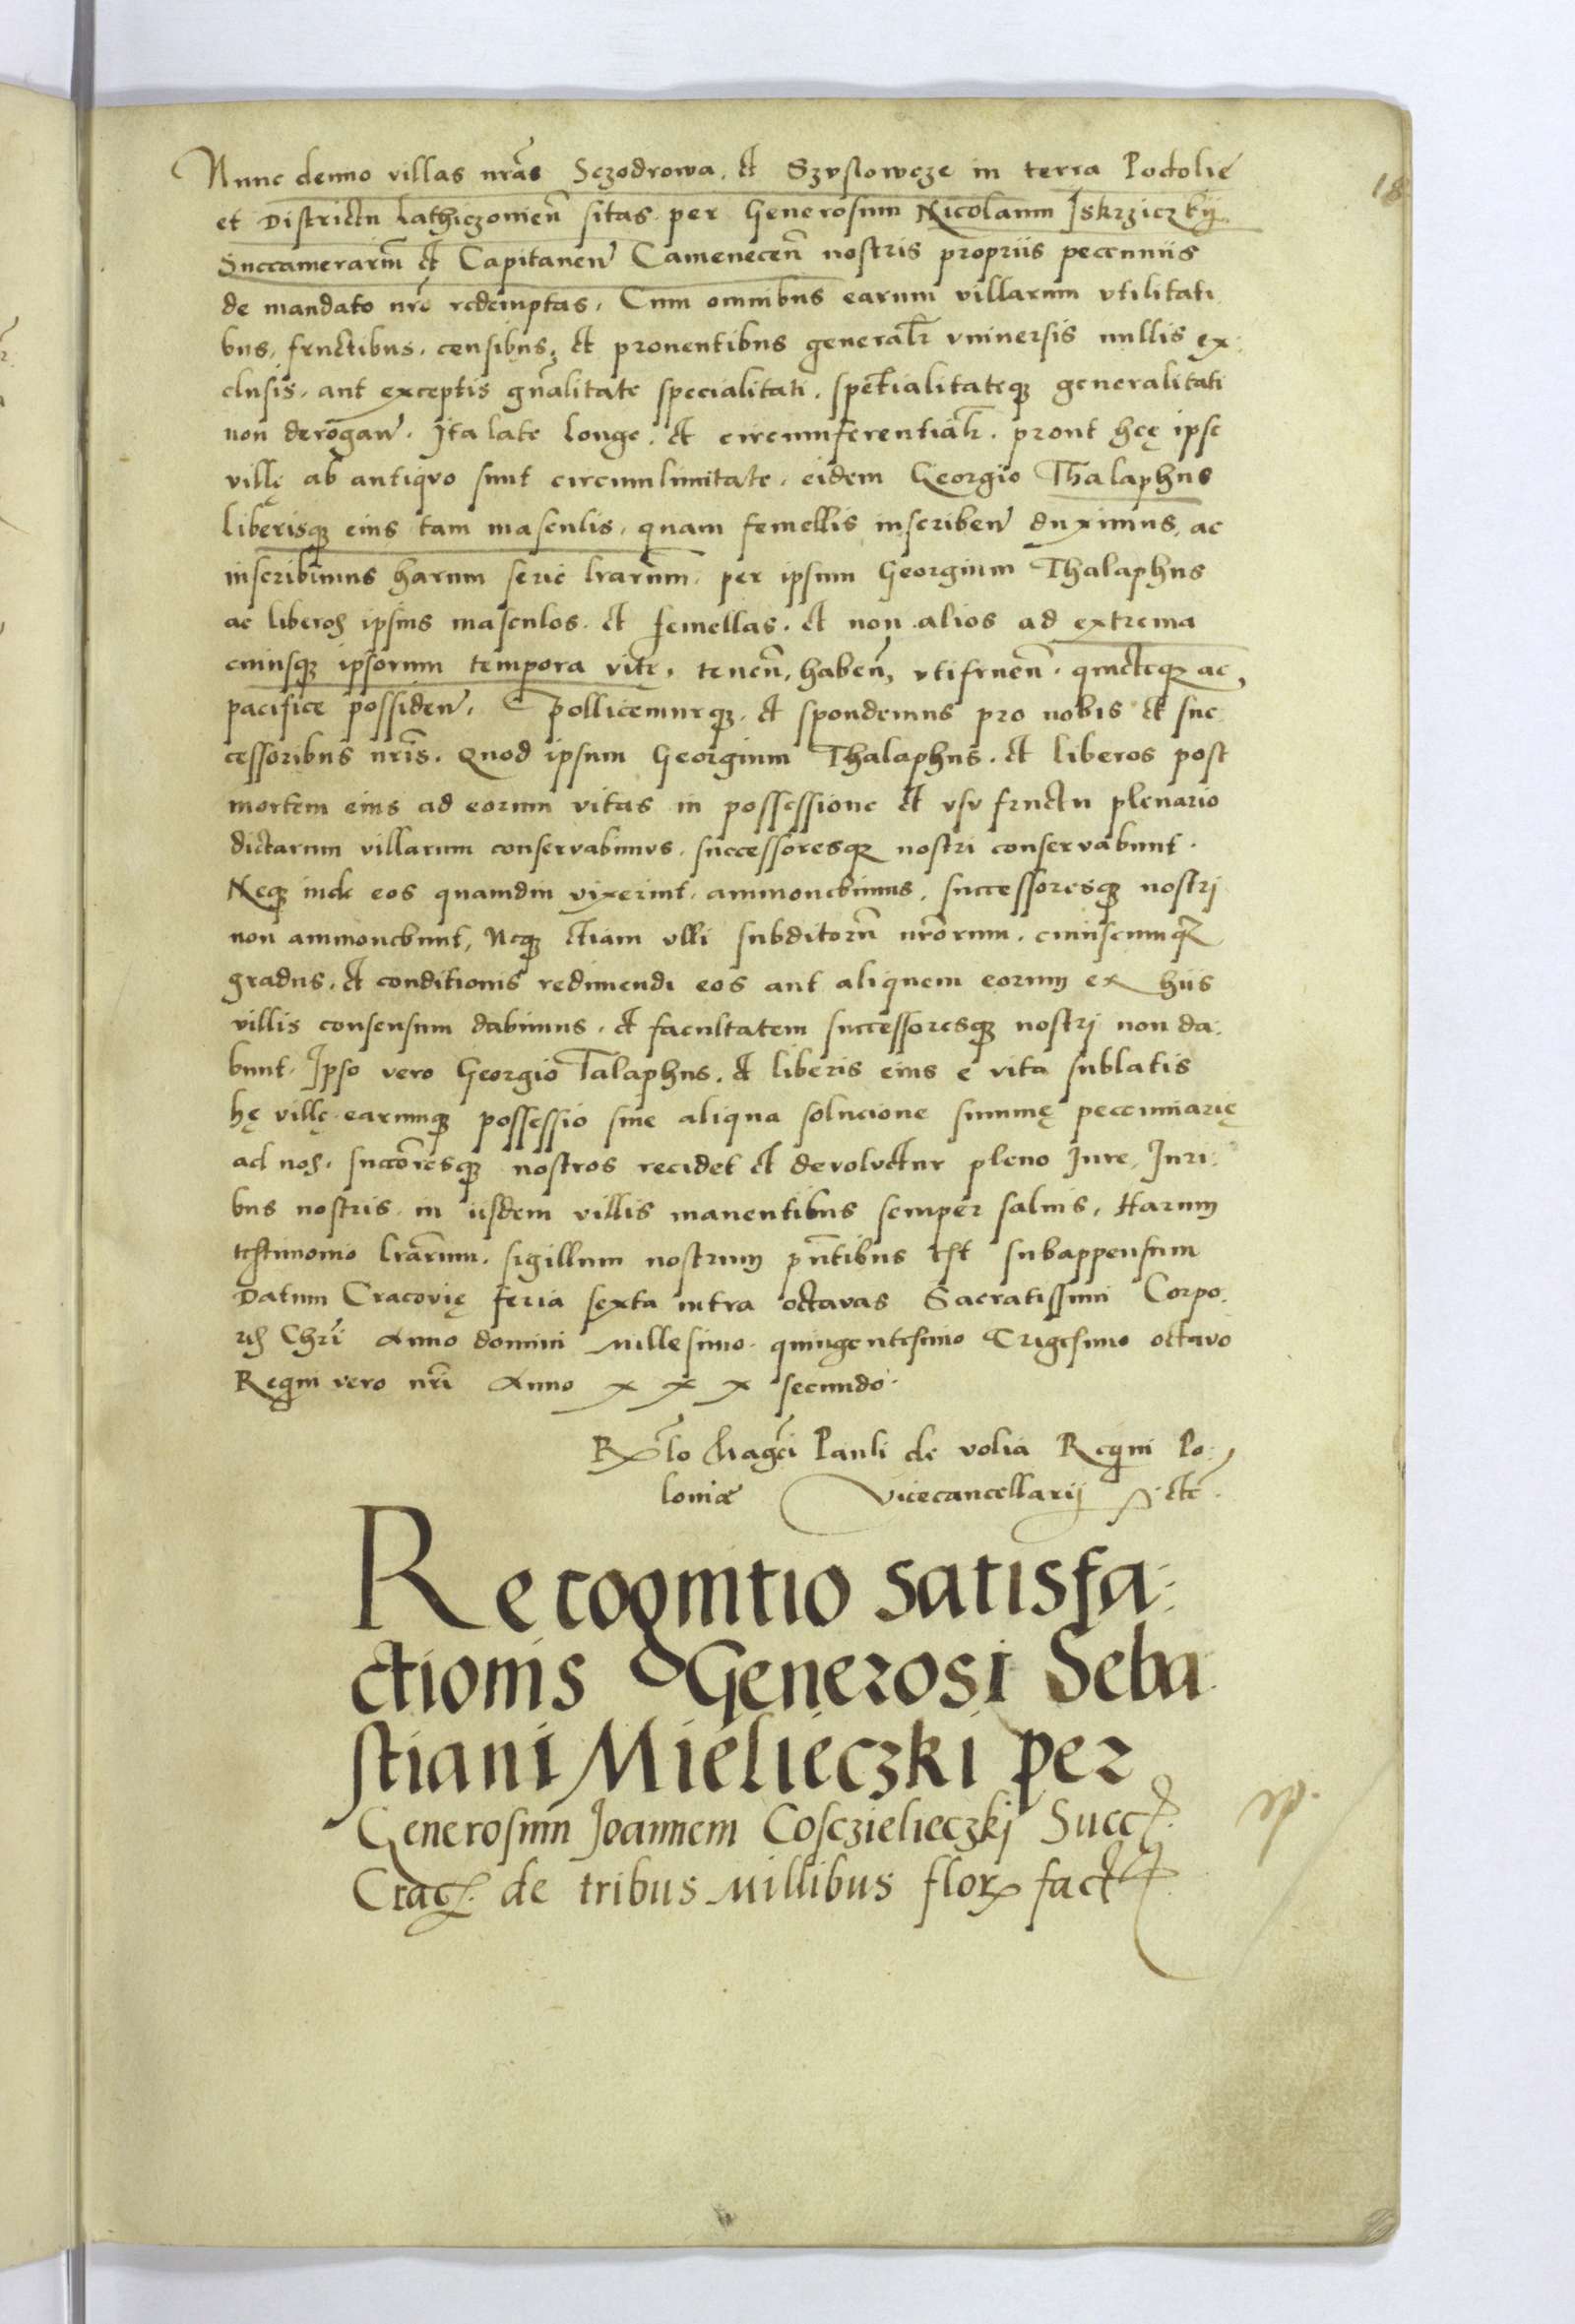 18
Nunc denuo villas nr̃as Sczodrowa. et Szvslowcze in terra Podolie
et Districtu Lathiczonieñ sitas per Generosum Nicolaum Iskrziczkij
Succamerariũ et Capitaneũ Cameneceñ nostris propriis peccuniis
de mandato nrõ redemptas. Cum omnibus earum villarum vtilitati
bus, fructibus. censibus, et prouentibus generalr̃ vniuersis nullis ex:
clusis. aut exceptis gñalitate specialitati. spetialitateq3 generalitati
non derogañ. Ita late longe. et circumferentialr̃. prout hęę ipse
villę ab antiqvo sunt circumlimitate. eidem Georgio Thalaphus
liberisq3 eius tam masculis. quam femellis inscribeñ duximus, ac
inscribimus harum serie lr̃arum. per ipsum Georgium Thalaphus
ac liberos ipsius masculos. et femellas. et non alios ad extrema
cuiusq3 ipsorum tempora vitę, teneñ, habeñ, vtifrueñ. quieteq3 ac
pacifice possideñ. Pollicemurq3. et spondemus pro nobis et suc
cessoribus nr̃is. Quod ipsum Georgium Thalaphus. et liberos post
mortem eius ad eorum vitas in possessione et vsv fructu plenario
dictarum villarum conservabimvs. successoresq3 nostri conservabunt.
Neq3 inde eos quamdiu vixerint. ammonebimus, successoresq3 nostrj
non ammouebunt, Neq3 etiam vlli subditorũ nr̃orum. cuiuscumq3
gradus. et conditionis redimendi eos aut aliquem eorum ex hiis
villis consensum dabimus. et facultatem successoresq3 nostrj non da:
bunt. Ipso vero Georgio Talaphus. et liberis eius e vita sublatis
hę villę earumq3 possessio sine aliqua solucione summę peccuniarię
ad nos. succõresq3 nostros recidet et devolvetur pleno Iure, Iuri:
bus nostris in iisdem villis manentibus semper saluis. Harum
testimonio lr̃arum. sigillum nostrum pñtibus est subappensum
Datum Cracovię feria sexta intra octavas Sacratissimi Corpo.
ris Chrĩ Anno domini Millesimo. quingentesimo Trigesimo octavo
Regni vero nrĩ Anno x x x secundo.
Rlõ Magcĩ Pauli de volia Regni Po:
loniæ Vicecancellarij etc.
Recognitio satisfa:
ctionis Generosi Seba
stiani Mielieczki per
Generosum Joannem Cosczielieczkj Succ.
Crac. de tribus Millibus flor fact